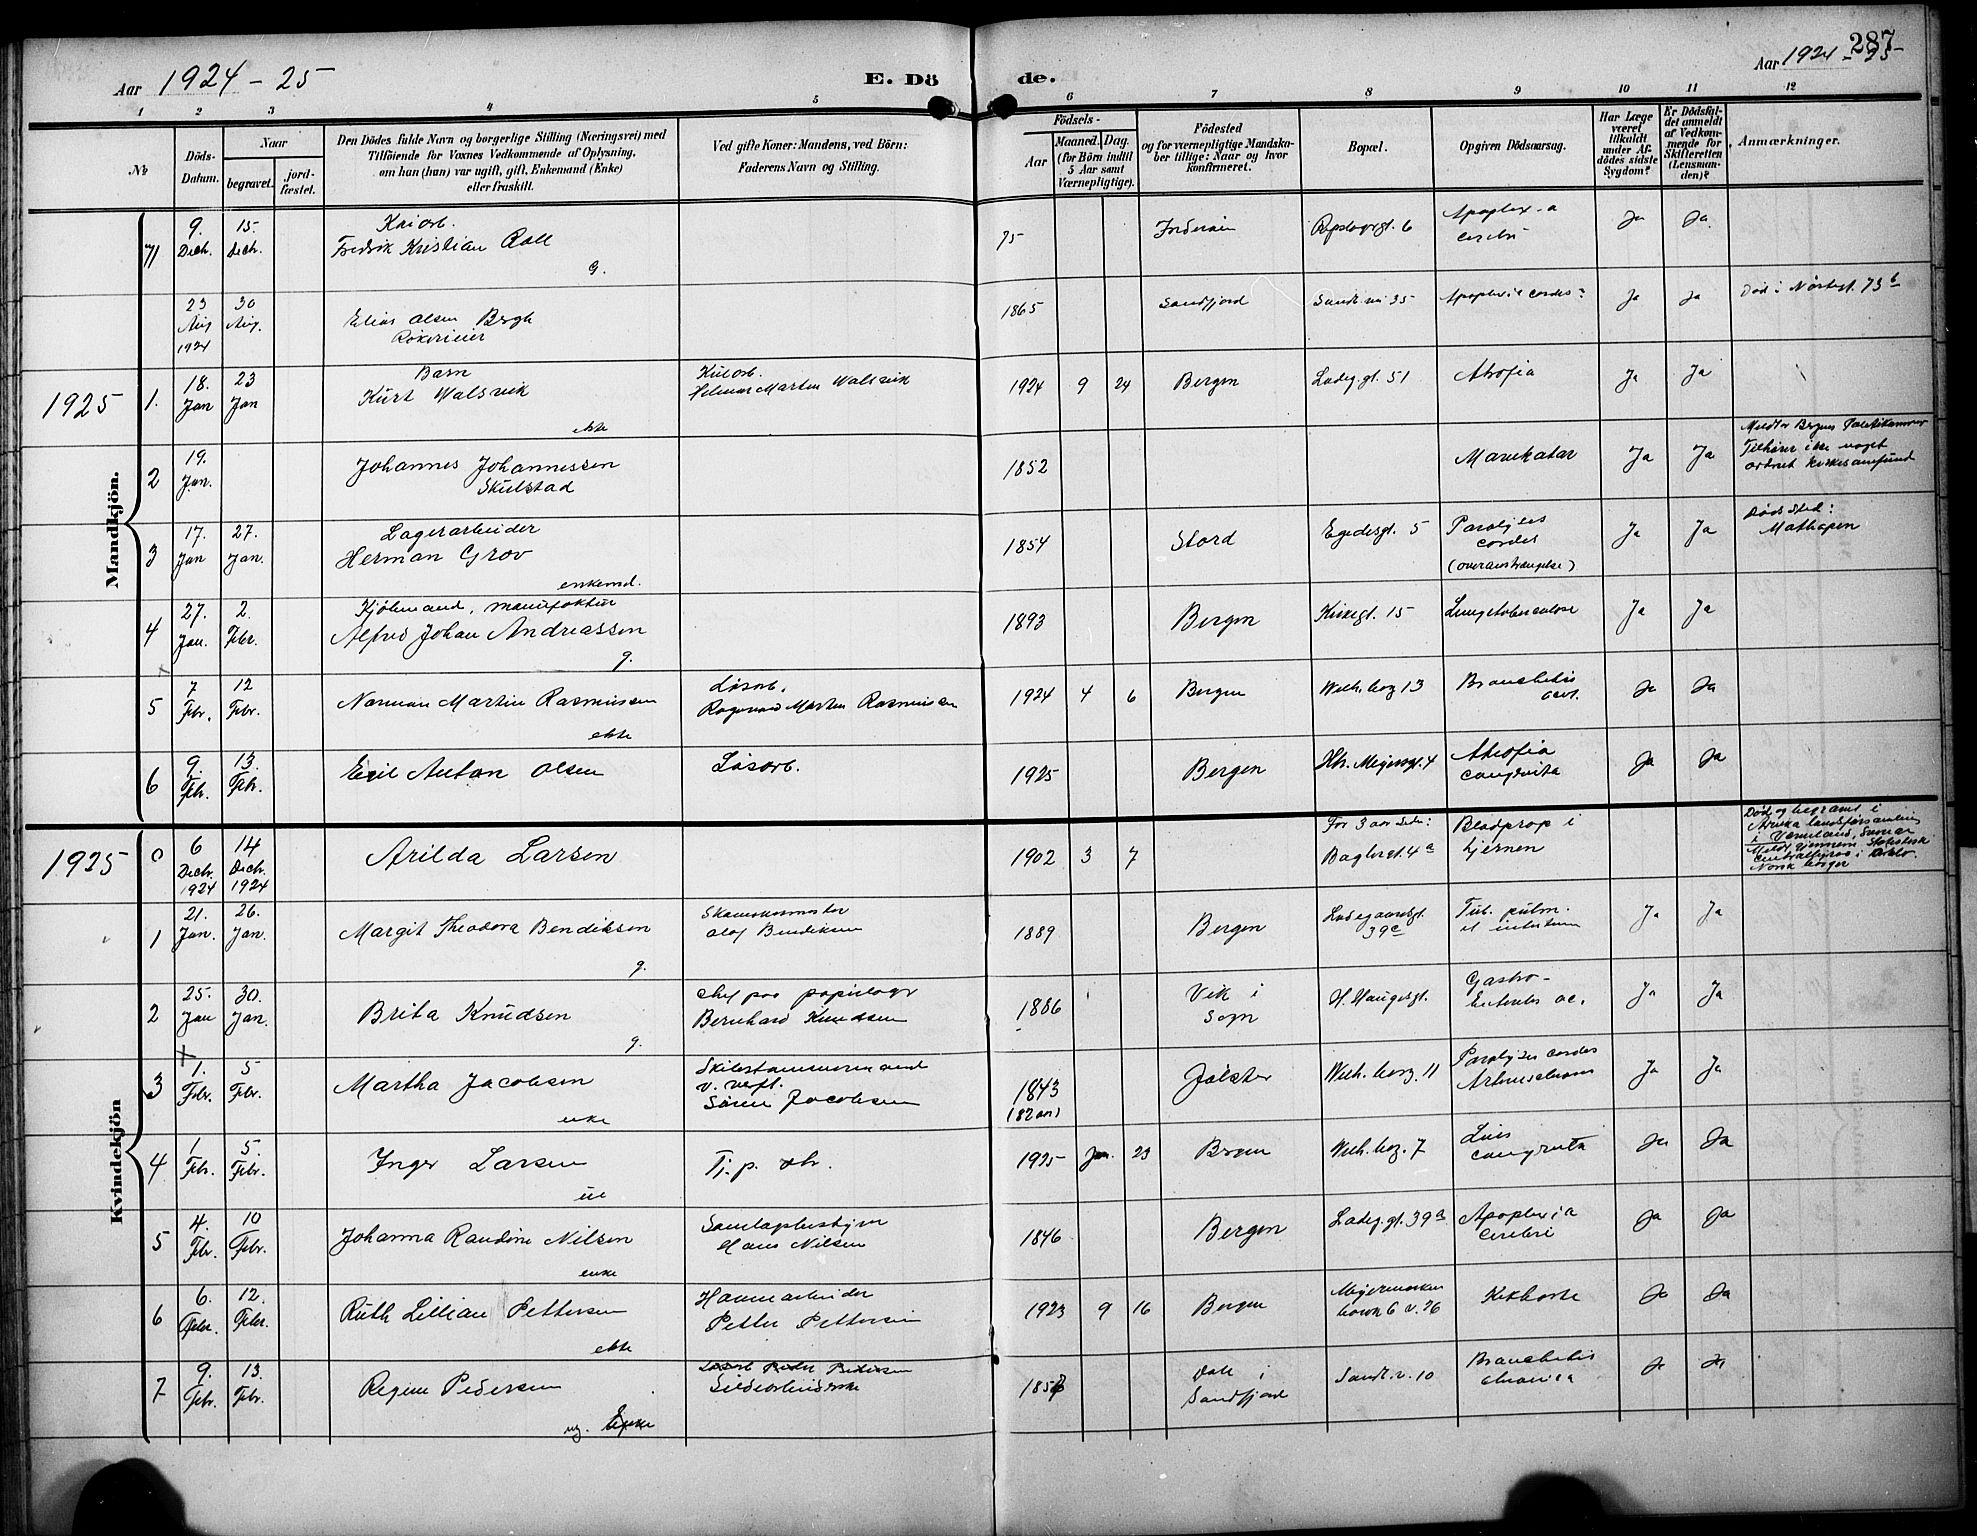 287
Aar 1924 - 25 E. Dö de. Aar 1924 - 25
1 2 3 4 5 6 7 8 9 10 11 12
No
Döds-Datum.
Naar
begravet. jord-fæstet.
Den Dödes fulde Navn og borgerlige Stilling (Næringsvei) med
Tilföiende for Voxnes Vedkommende af Oplysning,
om han (hun) var ugift, gift, Enkemand (Enke)
eller fraskilt.
Ved gifte Koner: Mandens, ved Börn:
Faderens Navn og Stilling.
Födsels-
Aar Maaned. Dag.
(for Börn indtil
5 Aar samt
Værnepligtige).
Födested
og for værnepligtige Mandska-
ber tillige: Naar og hvor
konfirmeret.
Bopæl.
Opgiven Dödsaarsag.
Har Læge
været
tilkaldt
under Af-
dödes sidste
Sygdom?
Er Dödsfal-
det anmeldt
af Vedkom-
mende for
Skifteretten
(Lensman-
den)?
Anmærkninger.
Mandkjön.
71 9. Decb. 15. Decb. Fredrik Kristian Roll G. 75 Inderøen 6 Apoplexia cerebri Ja Ja
23 Aug 1924 30 Aug. Elias Olsen Bergh 1865 Sandfjord 35 Apoplexia cordis Ja Ja Död i Nöstegt. 73 b
1925 1. 18. Jan 23 Jan Barn Kurt Walsvik ekte Martin Walsvik 1924 9 24 Bergen Ladeg.gt. 51 Atrofia Ja Ja
2 19. Jan. Johannes Johannessen Skulstad 1852 Ja Ja Tilhører ikke noget ordnet kirkesamfund
3 17. Jan 27. Jan. Lagerarbeider Herman Grov enkemd. 1854 Stord Egedesgt. 5 Paralysis cordis (overanstrængelse) Ja Ja Dödssted:
4 27. Jan. 2. Febr. Kjöbmand, manufaktur Alfred Johan Andreassen g. 1893 Bergen Kirkegt. 15 Lungetuberculose Ja Ja
5 7 Febr. 12 Febr. Norman Martin Rasmussen ekte Løsarb. Ragnvald Martin Rasmussen 1924 4 6 Bergen Wilh. borg 13 Bronchitis acut. Ja Ja
6 9. Feb. 13. Feb. Emil Anton Olsen Løsarb. 1925 Bergen Hbr. Meyersgt. 4 Atrofia congenita Ja Ja
Kvindekjön
1925 0 6 Decb. 1924 14 Decb. 1924 Arilda Larsen 1902 3 7 For 3 aar siden: Baglergt. 4 a Blodprop i hjernen Död og begravet i Arvika landsförsamling i Värmland, Meldt gjennem Statistisk Centralbyraa i Oslo. Norsk borger
1 21. Jan. 26. Jan. Margit Theodora Bendiksen g. Olaf Bendiksen 1889 Bergen Ladegaardsgt. 39 c Tub. pulm. et intestinum Ja Ja
2 25. Jan 30. Jan. Brita Knudsen g. Bernhard Knudsen 1886 Vik i Sogn H. Haugesgt. Gastro-Enteritis ac. Ja Ja
3 1. Febr. 5 Febr. Martha Jacobsen enke Skibstømmermand v. verft. Sören Jacobsen 1843 (82 aar) Jölster Wilh. borg. 11 Paralysis cordis Ja Ja
4 1 Feb. 5. Febr. Inger Larsen ue Tj. p. 1925 Jan. 23 Bergen Wilh. borg. 7 Lues congenita Ja Ja
5 4. Febr. 10 Febr. Johanna Randine Nilsen enke Hans Nilsen 1846 Bergen Ladeg.gt. 39 a Apoplexia cerebri Ja Ja
6 6. Febr. 12. Febr. Ruth Lillian Pettersen ekte Havnearbeider Petter Pettersen 1923 9 16 Bergen Meyermarken 6 v. 26 Kikhoste Ja Ja
7 9. Febr. 13. Febr. Regine Pedersen Enke Sildearbeiderske Dale i Sandfjord Sandv.v. 10 Bronchitis chronica Ja Ja